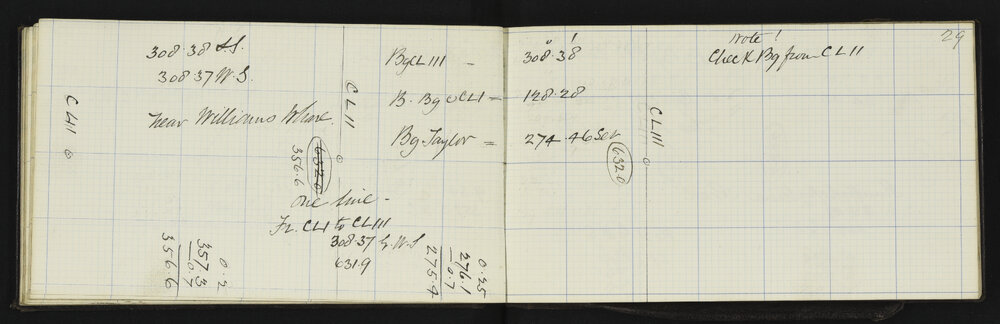 308·38
308·37 W.S.
Near Williams Wharf
CLII
CLII
(6320)
356.6
One line -
Fr. CLI to CLIII
308·37 by W.S
631.9
0.2
357.3
0.7
356.6
0.25
276.1
-0.7
275.4
Bg CLIII -
B. Bg CLI =
Bg. Taylor =
o '
308·38
128·28
274·46 Sev
(632.0)
CLIII
Note!
Check Bg from CLIII
29